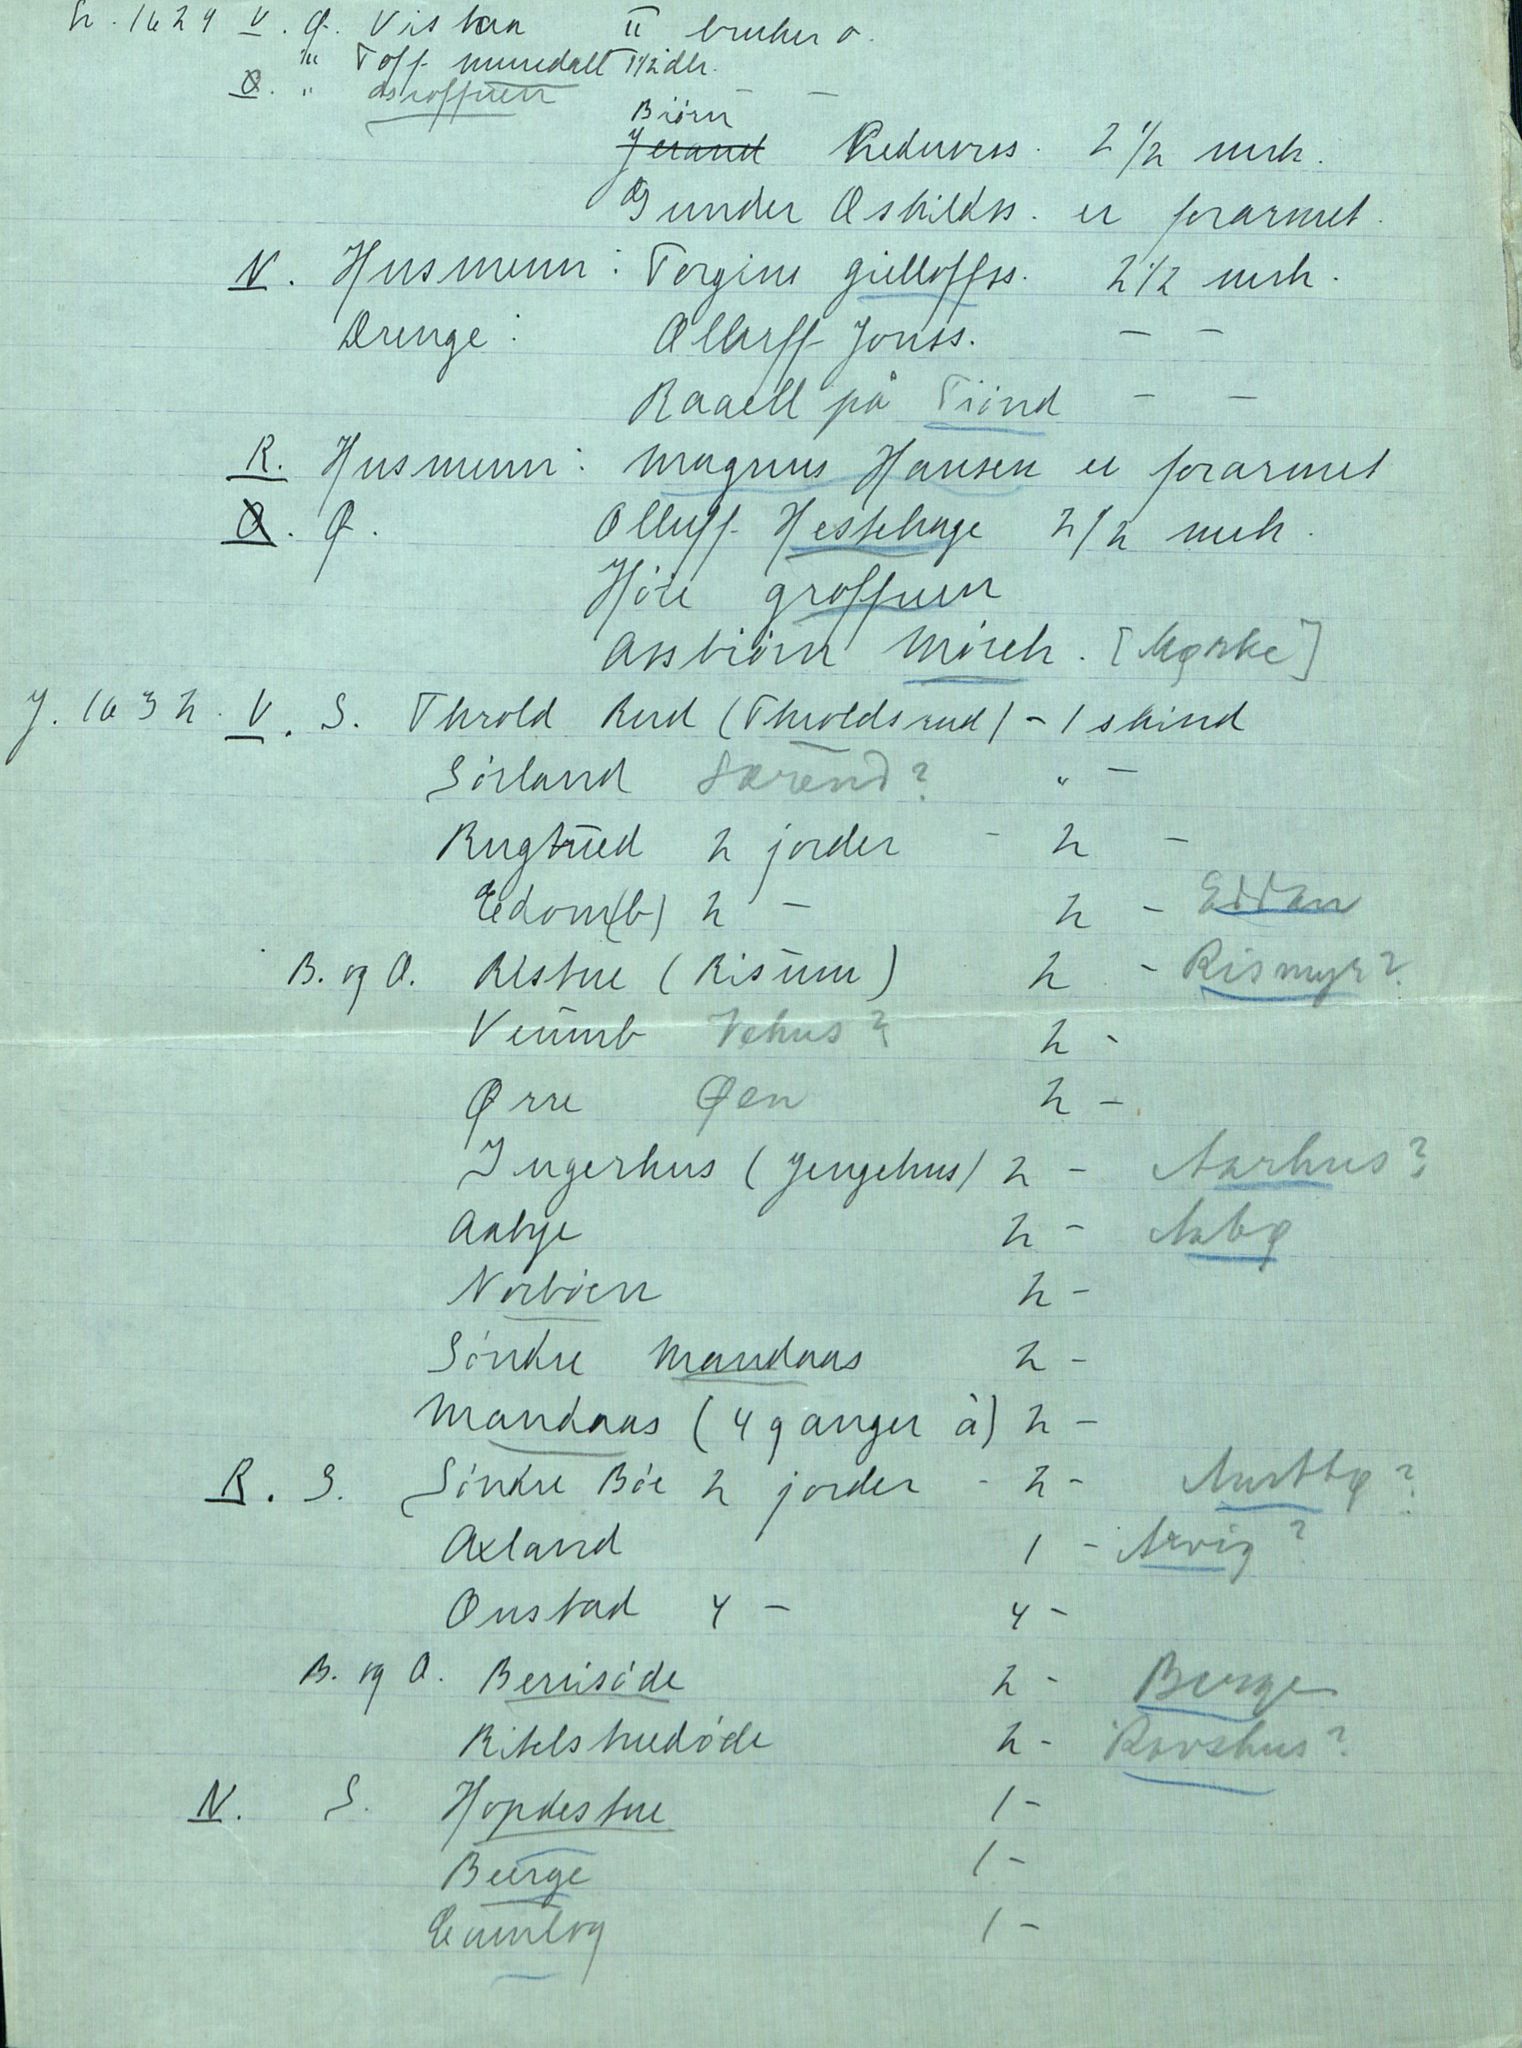 Sr. 1624 V. Ø. Vistaa II bruker o.
" Toff mumdalt 1 1/2 dlr.
O. " groffuen — —
Biørn
Jerand Kednorss. 2 1/2 mrk.
Gunder Oskildss. er forarmet.
N. Husmenn: Torgius gielloffss. 2 1/2 mrk.
Drenge: Olluff Jonss. — —
Raaell på Tiönd — —
R. Husmenn: Magnus Hansen er forarmet
O. Ø. Olluff Hestehage 2 1/2 mrk.
Höie groffuen
Assbiörn Mörch. [Mørke]
J. 1632. V. S. Throld Rud (Throldsrud) - 1 skind
Sörland Særend? " —
Rugtued 2 jorder - 2 -
Edom(b) 2 — 2 - Eddan
B. og O. Ristue (Risum) 2 - Rismyr?
Veumb Vehus? 2 -
Ørre Øen 2 -
Ingerhus (Jengehus) 2 - Aarhus?
Aabye 2 - Aabø
Norböen 2 -
Söndre Mandaas 2 -
Mandaas (4 ganger à) 2 -
R. S. Söndre Böe 2 jorder - 2 - Austbø?
Axland 1 - Arvig?
Onstad 4 — 4 -
B. og O. Bernisöde 2 - Berge
Kitelstuedöde 2 - Rovshus?
N. S. Hopdestue 1 -
Beerge 1 -
Eamlog 1 -